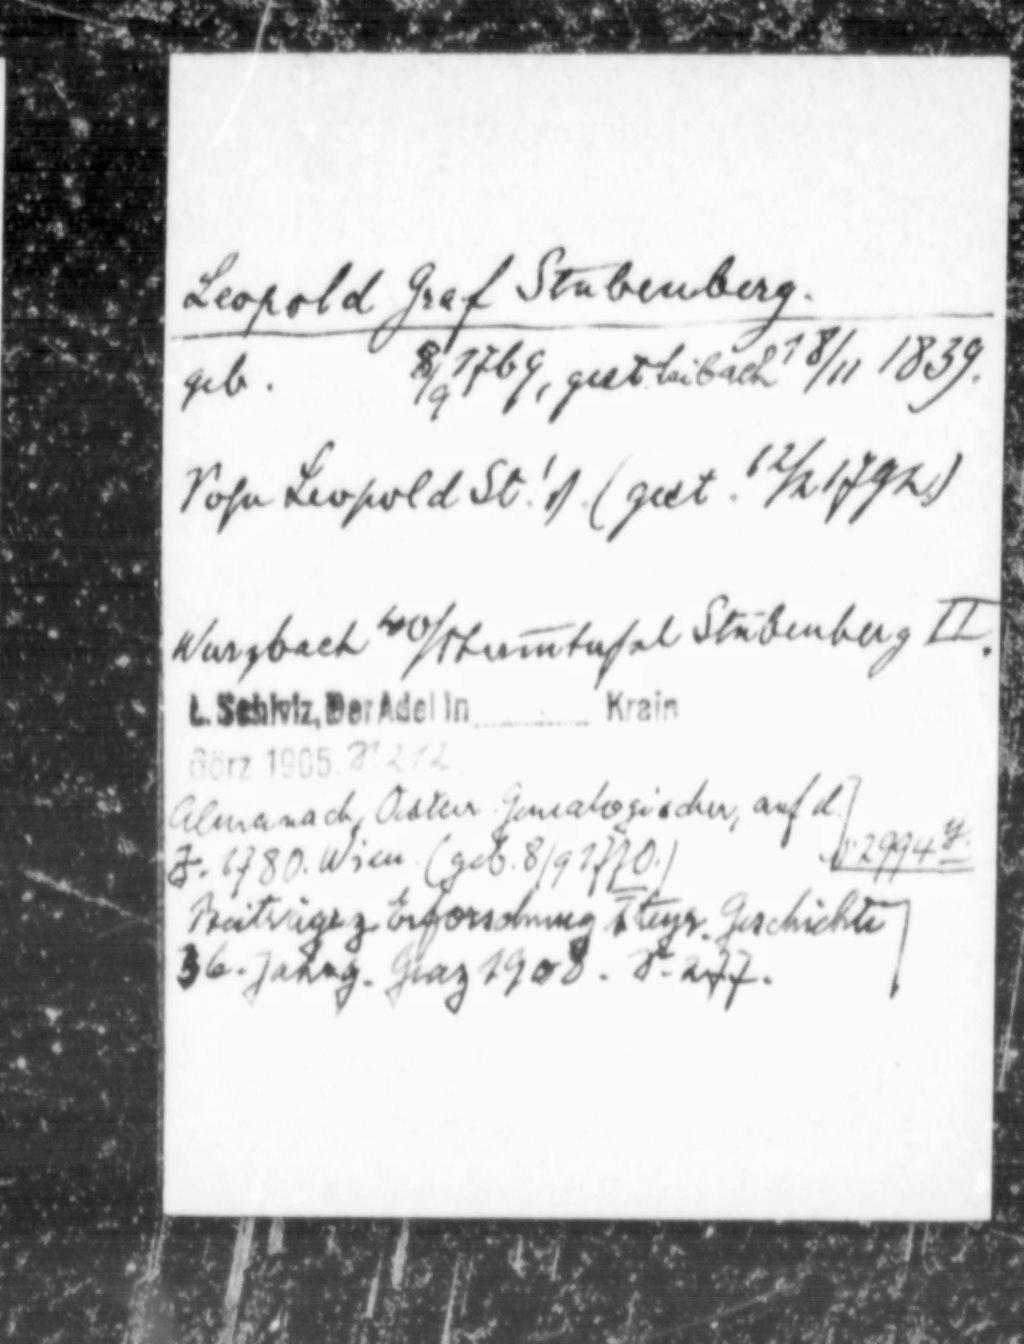 Leopold Graf Stubenberg.
geb. 8/9 1769, gest. Laibach 18/11 1839.
Sohn Leopold St.'s. (gest. 12/2 1792.)
Wurzbach 40/Stammtafel Stubenberg II.
L. Schiviz, Der Adel in Krain
Görz 1905. S. 212.
Almanach, Oester. Genealogischer, auf d.
J. 1780. Wien. (geb. 8/9 1770.)
2994
Beiträge z. Erforschung steyr. Geschichte
36. Jahrg. Graz 1908. S. 277.